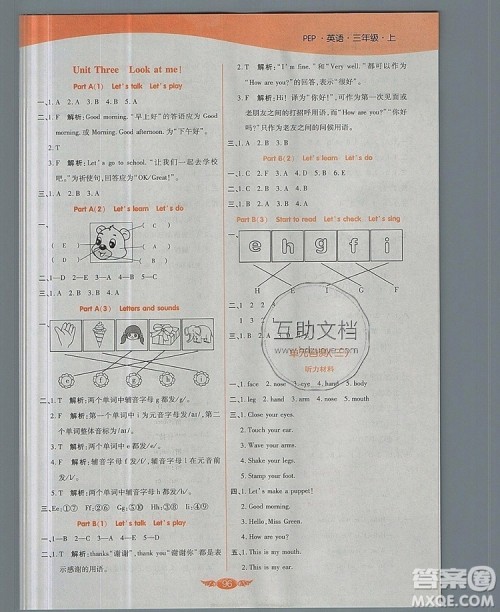 PEP·英语·三年级·上
Unit Three Look at me!
Part A(1) Let's talk Let's play
一、1. A 2. A 3. B 4. A
二、1. F 解析: Good morning. "早上好"的答语应为 Good
morning. 或 Morning. Good afternoon. 为"下午好"。
2. T
3. F 解析: Let's go to school. "让我们一起去学校
吧。"为祈使句, 回答应为"OK/Great!"。
三、1. A 2. B 3. A
Part A(2) Let's learn Let's do
一、
( E )
( D )
( C )
( A )
( B )
二、1—D 2—E 3—A 4—C 5—B
三、1—C 2—B 3—E 4—A 5—D
Part A(3) Letters and sounds
一、
e f g h i
二、1. T 解析: 两个单词中辅音字母 g 都发/g/。
2. F 解析: 第一个单词中 i 为元音字母发/aɪ/, 第
二个单词整体音标为/aɪ/。
3. T 解析: 两个单词中 e 都发/e/。
4. F 解析: 辅音字母 h 发/h/, 辅音字母 h 在元音前
发/h/。
5. T 解析: 两个单词中辅音字母 f 都发/f/。
三、Ee:①⑦ Ff:③⑧ Gg:②⑥ Hh:⑤⑩ Ii:④⑨
Part B(1) Let's talk Let's play
一、1. T 解析: thanks"谢谢", thank you"谢谢你", 都
表示感谢的用语。
2. T 解析: "I'm fine." 和"Very well." 都可以作为
"How are you?"的回答, 表示"很好"。
3. F 解析: Hi! 译为"你好!", 可作为第一次见面或
老朋友之间的打招呼用语, 而"How are you?""你
好!"只作为老友之间的问候用语。
二、1. B 2. A 3. B 4. B
Part B(2) Let's learn Let's do
一、1. A 2. A 3. B 4. A 5. A
二、1—C 2—E 3—A 4—B 5—D
三、1. A 2. B 3. A 4. B
Part B(3) Start to read Let's check Let's sing
一、
e h g f i
H I E F G
二、1 2 2
三、1. A
听力材料
一、1. face 2. nose 3. eye 4. hand 5. body
二、1. leg 2. hand 3. arm 4. mouth
三、1. Close your eyes.
2. Touch your ear.
3. Wave your arms.
4. Shake your legs.
5. Stamp your foot.
四、1. Let's make a puppet!
2. Good morning.
3. Hello, Miss Green.
4. How are you?
五、1. This is my mouth.
2. This is my ear.
96
互助文档
答案圈
MXQE.COM